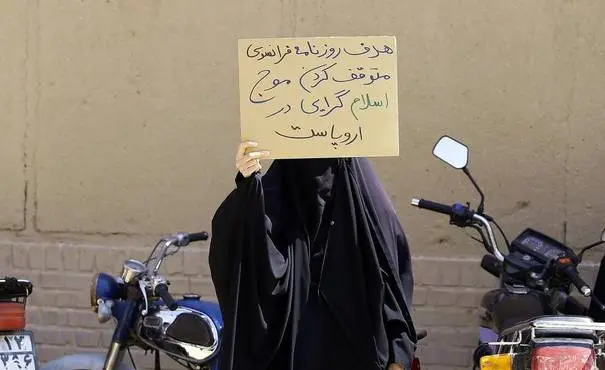 هدف روزنامه فرانسوی
متوقف کردن موج
اسلام گرایی در
اروپاست